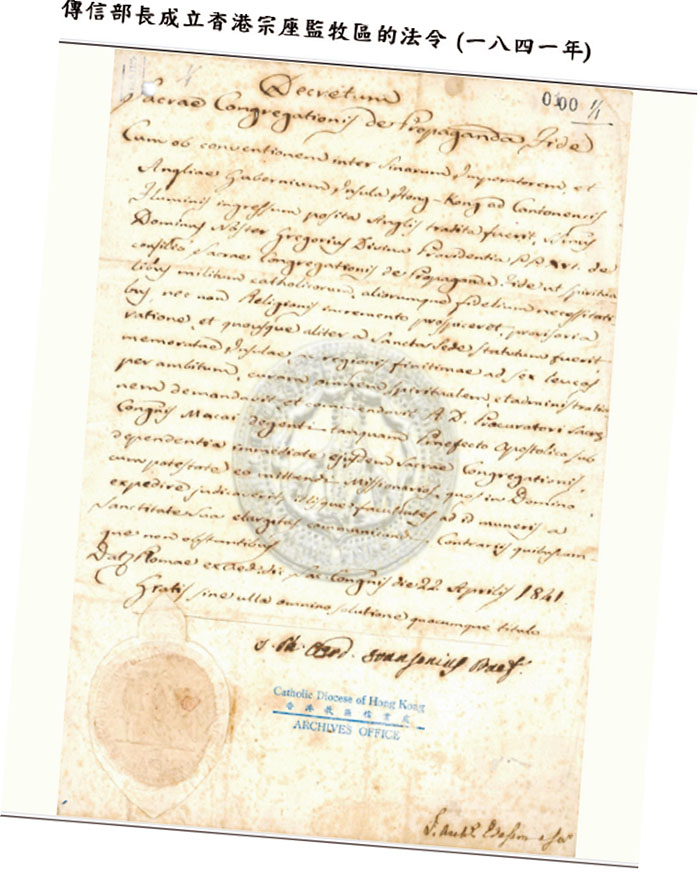 傳信部長成立香港宗座監牧區的法令 (一八四一年)
0300 1/1
Decretum
Sacrae Congregationis de Propaganda Fide
Cum ob conventionem inter Sinarum Imperatorem, et
Angliae Gubernium, Insula Hong-Kong ad Cantonensis
Fluminis ingressum posita Anglis tradita fuerit,
Dominus Noster Gregorius Divina Providentia P.P. XVI. de
consilio Sacrae Congregationis de Propaganda Fide ut spiritua
libus militum catholicorum, aliorumque fidelium necessitati
bus, nec non Religionis incremento prospiceret, provisoria
ratione, et quousque aliter a Sancta Sede statutum fuerit
memoratae Insulae, ac regionis finitimae ad sex leucas
per ambitum, curam omnem spiritualem, et administratio
nem demandavit, et commendavit R. D. Procuratori Sacrae
Congnis Macai degenti tanquam Praefecto Apostolico sub
dependentia immediate ejusdem Sacrae Congregationis,
cum potestate eo mittendi Missionarios, quos in Domino
expedire judicaverit, iisque facultates ad id muneris a
Sanctitate Sua elargitas communicandi. Contrariis quibuscum
que non obstantibus
Datum Romae ex Aedibus Sac. Congnis die 22 Aprilis 1841
Gratis sine ulla omnino solutione quocumque titulo
J. Ph. Card. Fransonius Praef.
Catholic Diocese of Hong Kong
香港教區檔案處
ARCHIVES OFFICE